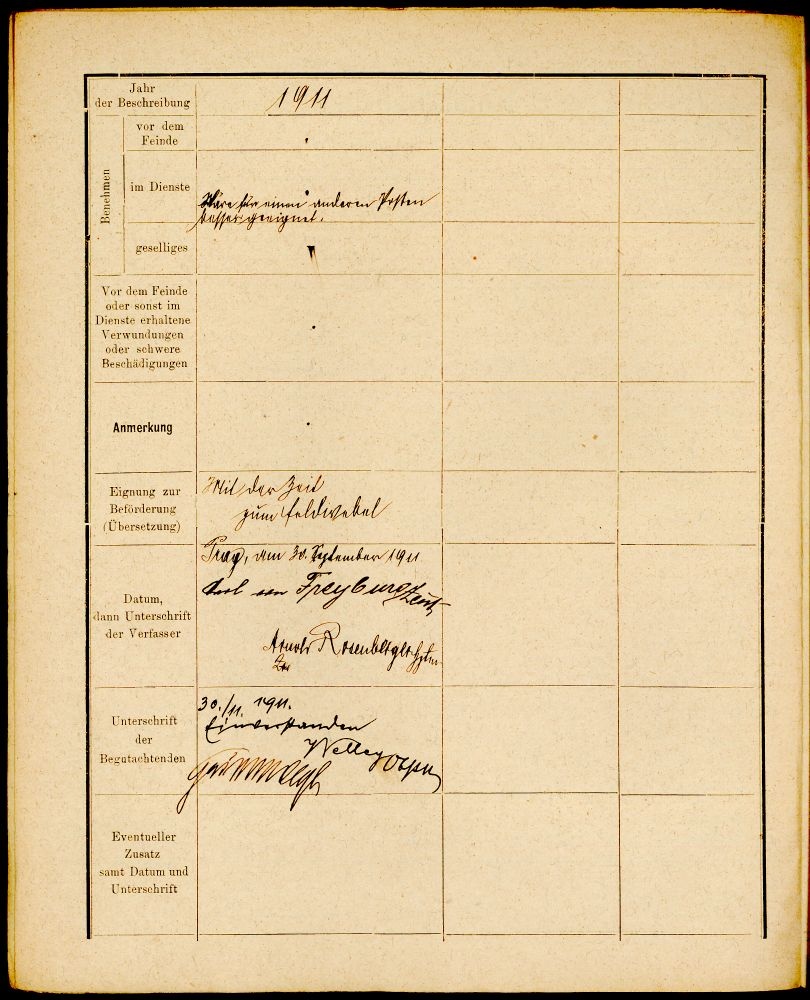 Jahr
der Beschreibung
1911
Benehmen
vor dem
Feinde
im Dienste
Wäre für einen anderen Posten
besser geeignet.
geselliges
Vor dem Feinde
oder sonst im
Dienste erhaltene
Verwundungen
oder schwere
Beschädigungen
Anmerkung
Eignung zur
Beförderung
(Übersetzung)
Mit der Zeit
zum Feldwebel
Datum,
dann Unterschrift
der Verfasser
Prag, am 30. September 1911
von Freyburg
Arnold
Unterschrift
der
Begutachtenden
30./11. 1911.
Einverstanden
Eventueller
Zusatz
samt Datum und
Unterschrift